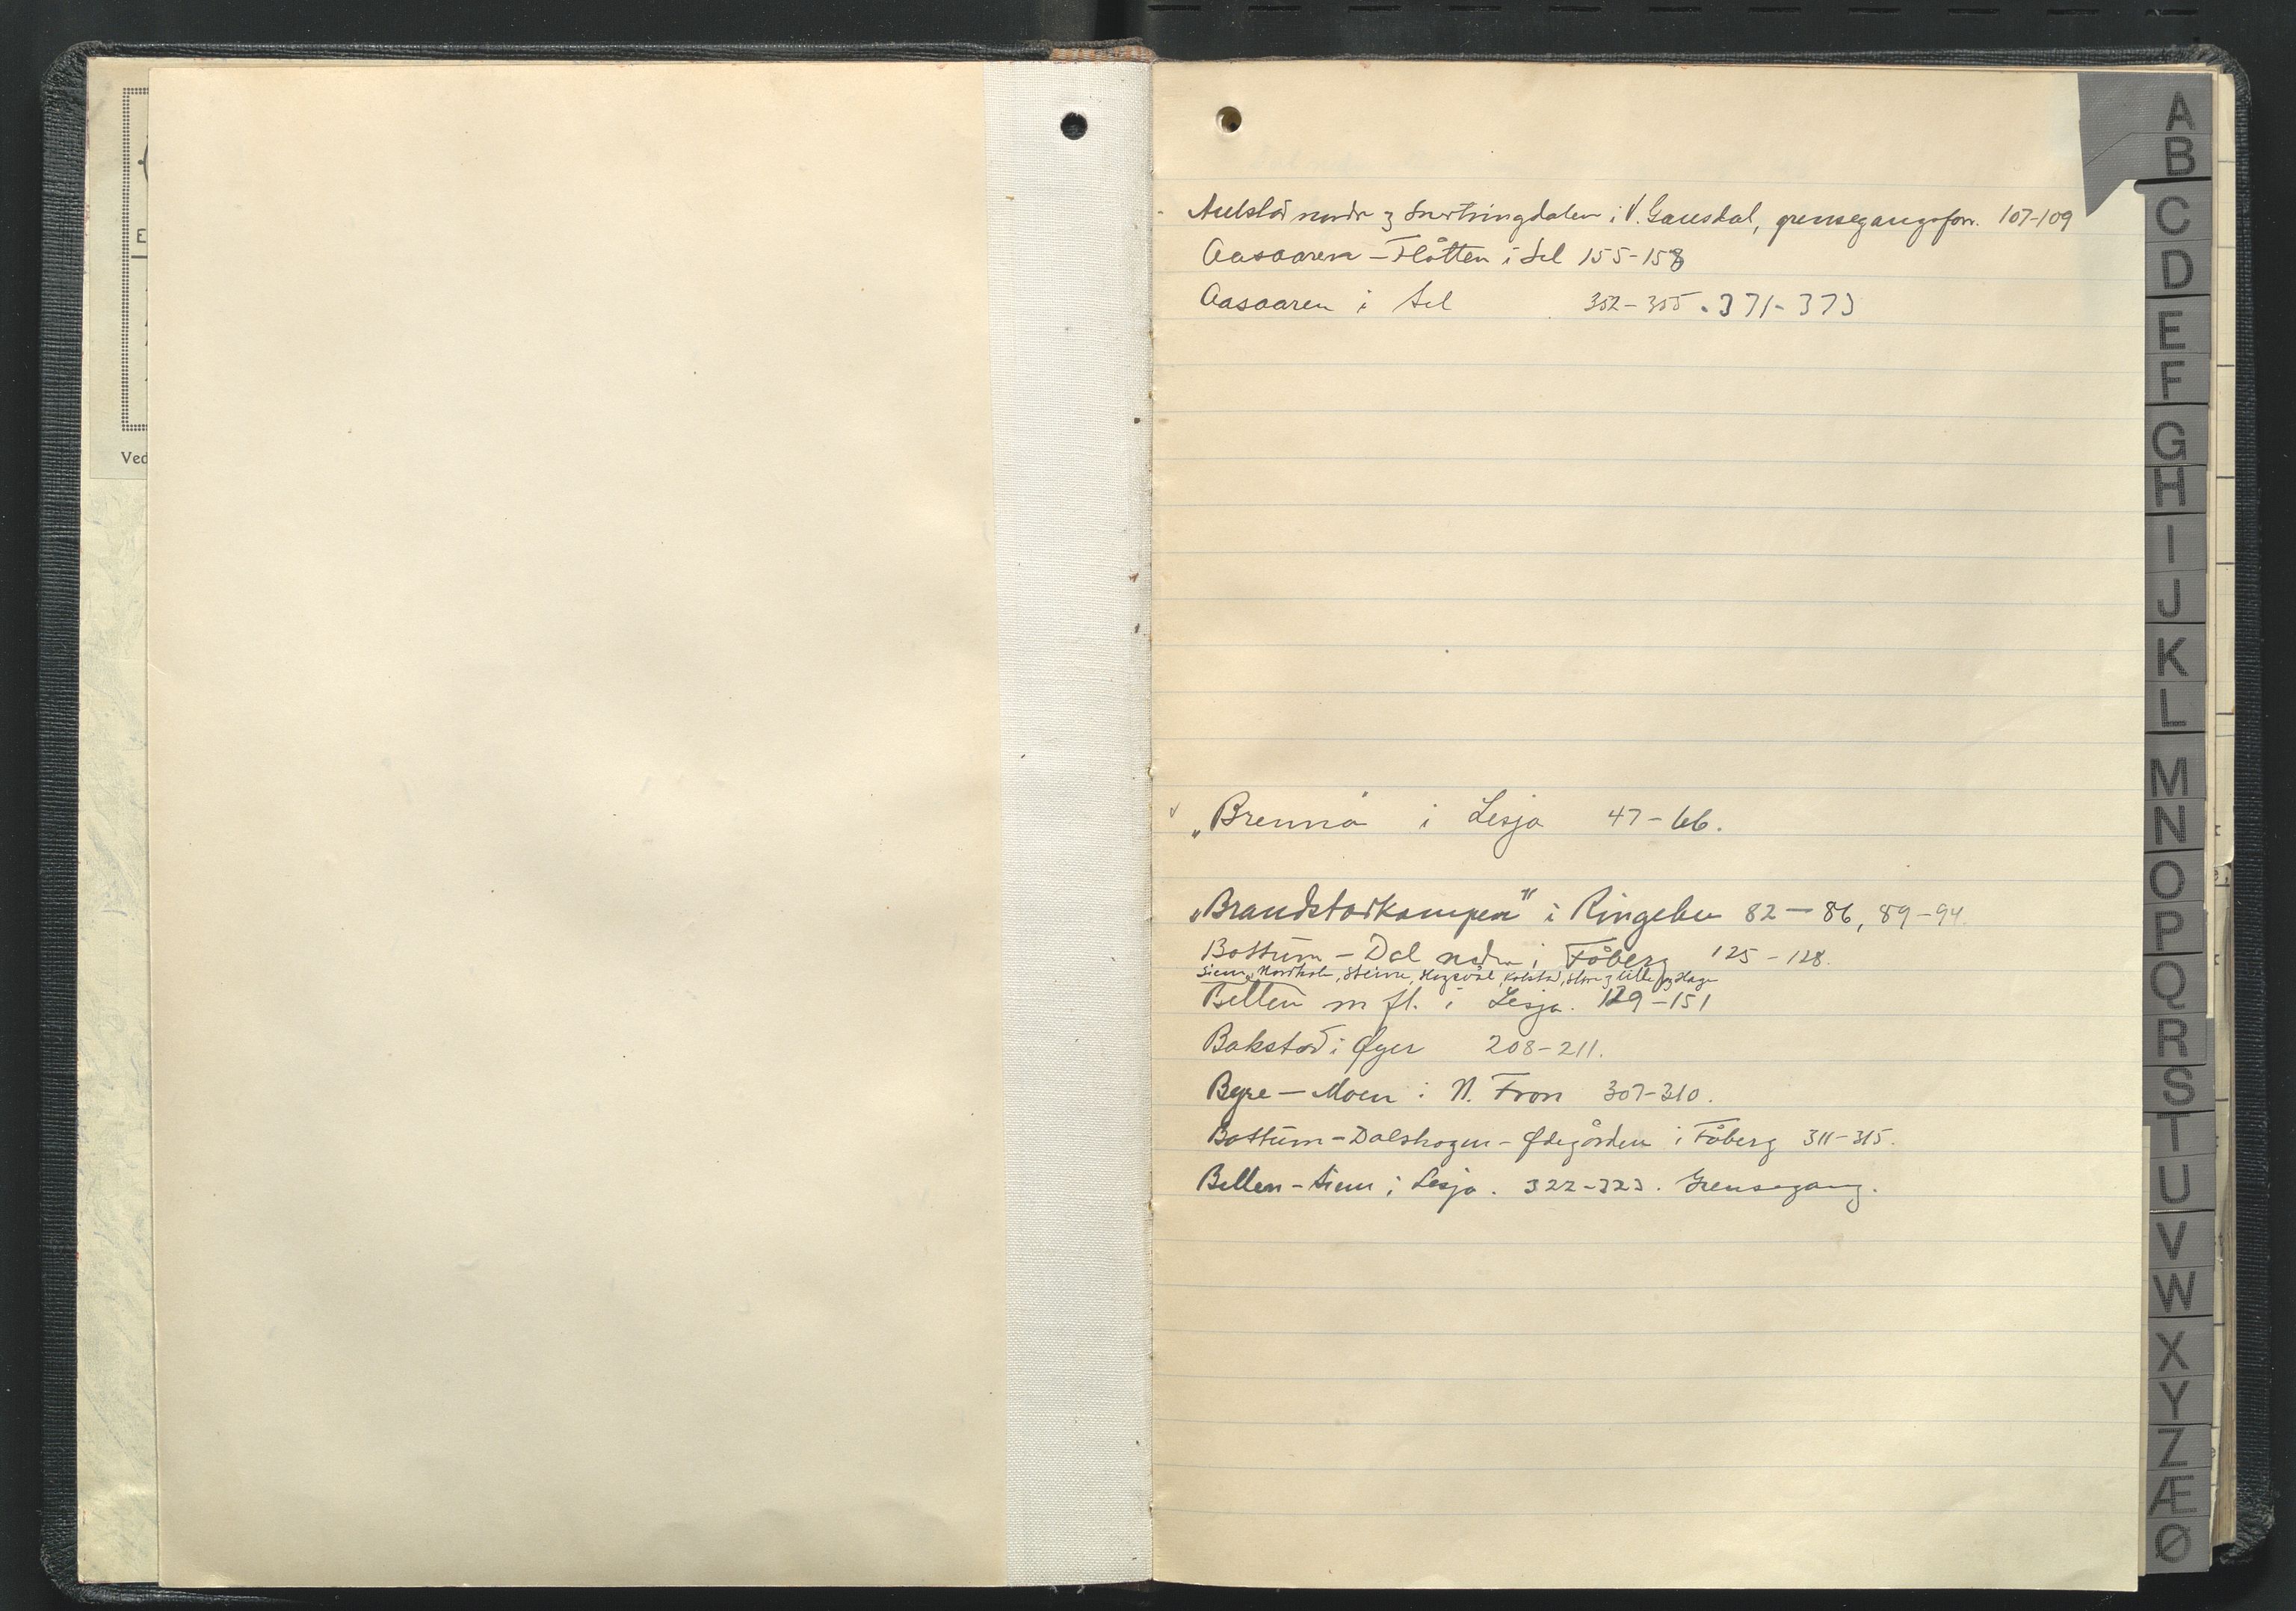 Ved
Aulstad nordre og Snertringdalen i V. Gausdal, grensegangsforr. 107-109
Aasaaren – Flåtten i Sel 155-158
Aasaaren i Sel 352-355 . 371-373
„Brenna" i Lesja 47-66.
„Brandstadkampen" i Ringebu 82 — 86, 89-94
Bottum – Dal nedre i Fåberg 125 – 128.
Siem, Nordhole, Steine, Kolstad, Store og Lille Hage
Bellen m fl. i Lesja. 129-151
Bakstad i Øyer 208-211.
Byre – Moen i N. Fron 307-310.
Bottum – Dalshagen – Ødegården i Fåberg 311-315.
Bellen – Siem i Lesja. 322-323. Grensegang.
A
B
C
D
E
F
G
H
I
J
K
L
M
N
O
P
Q
R
S
T
U
V
W
X
Y
Z
Æ
Ø